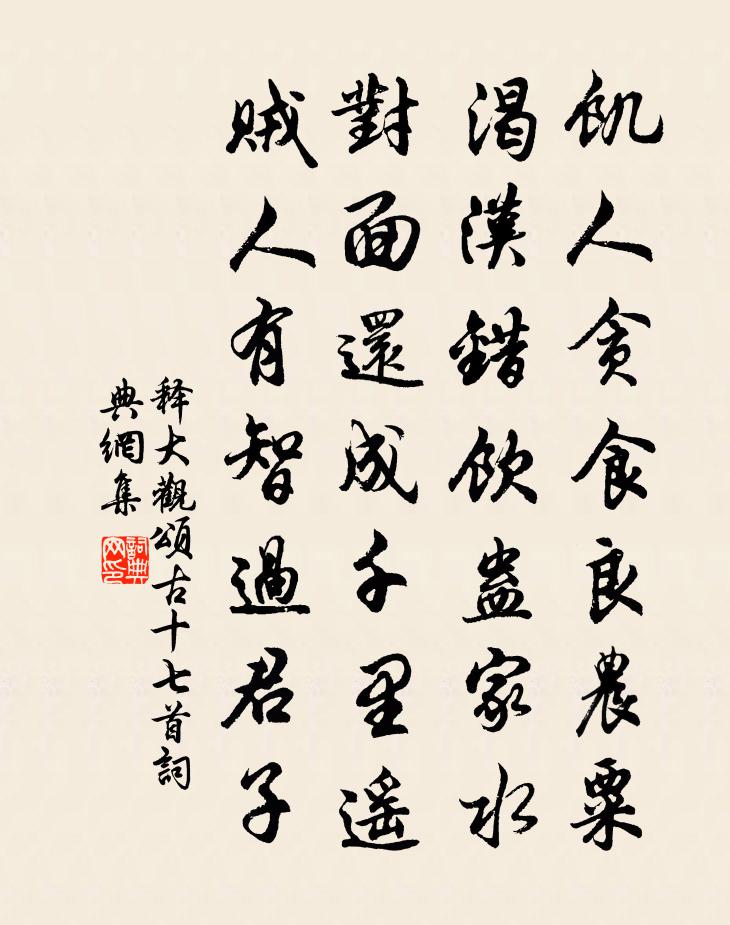 飢人貪食良農粟
渴漢錯飲蠱家水
對面還成千里遥
賊人有智過君子
释大觀頌古十七首詞
典網集
詞典網印